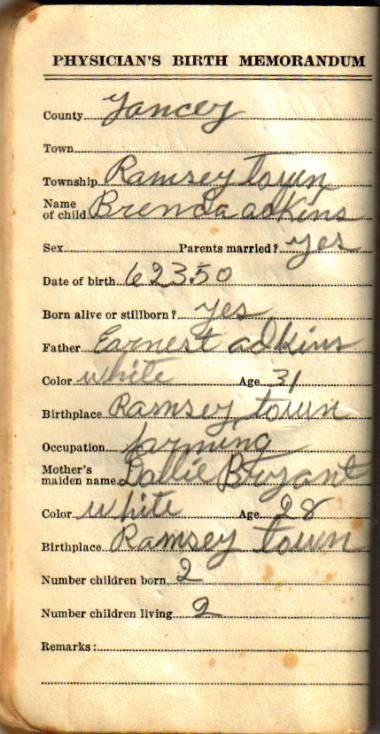 PHYSICIAN'S BIRTH MEMORANDUM
County Yancey
Town
Township Ramsey town
Name of child Brenda adkins
Sex Parents married? yes
Date of birth 62350
Born alive or stillborn? yes
Father Earnest adkins
Color white Age 31
Birthplace Ramsey town
Occupation farming
Mother's maiden name Dallie Bryant
Color white Age 28
Birthplace Ramsey town
Number children born 2
Number children living 2
Remarks: